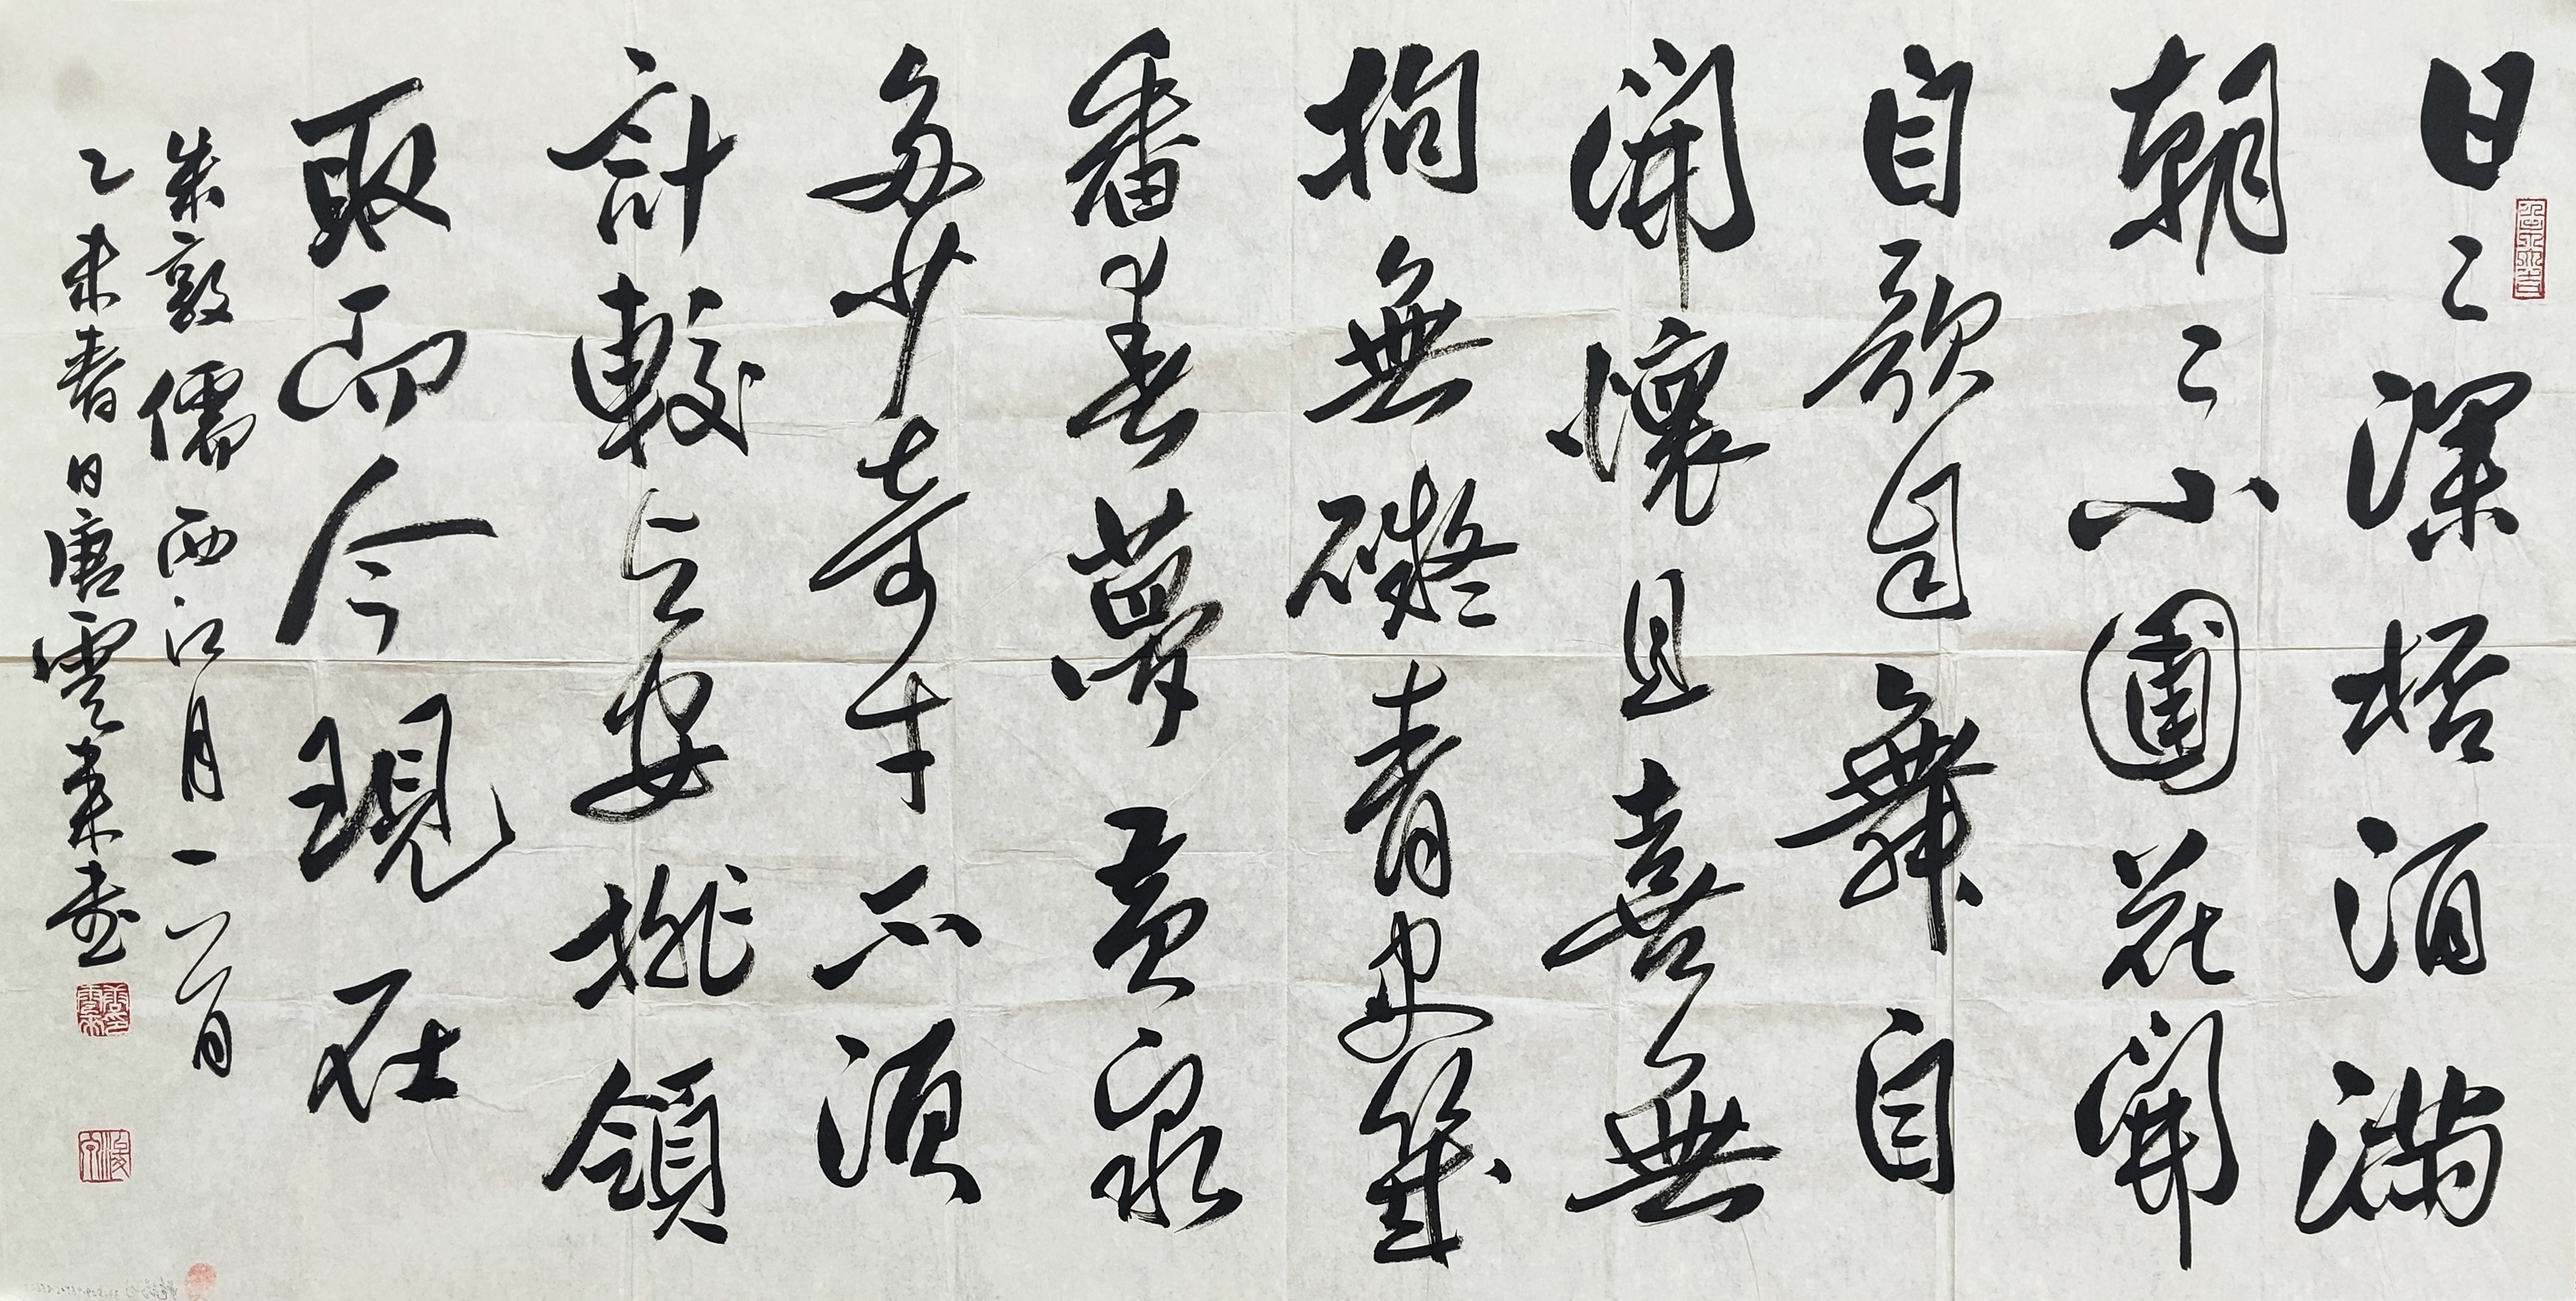 日〻深桮酒滿
朝〻小圃花開
自歌自舞自
開懷且喜無
拘無礙青史幾
番春夢黃泉
多少奇才不須
計較与安排領
取而今現在
朱敦儒西江月一首
乙未春日唐雲來書